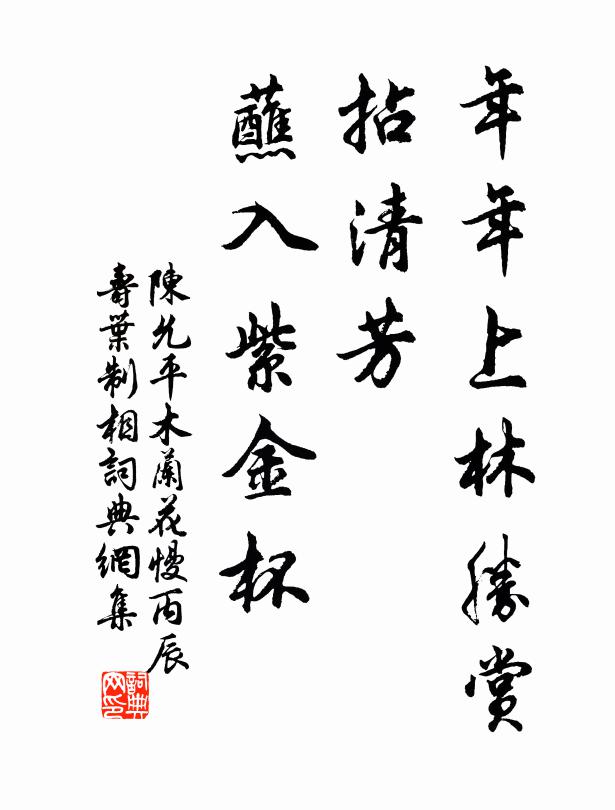 年年上林勝賞
拈清芳
蘸入紫金杯
陳允平木蘭花慢丙辰
壽葉制相詞典網集
詞典网印